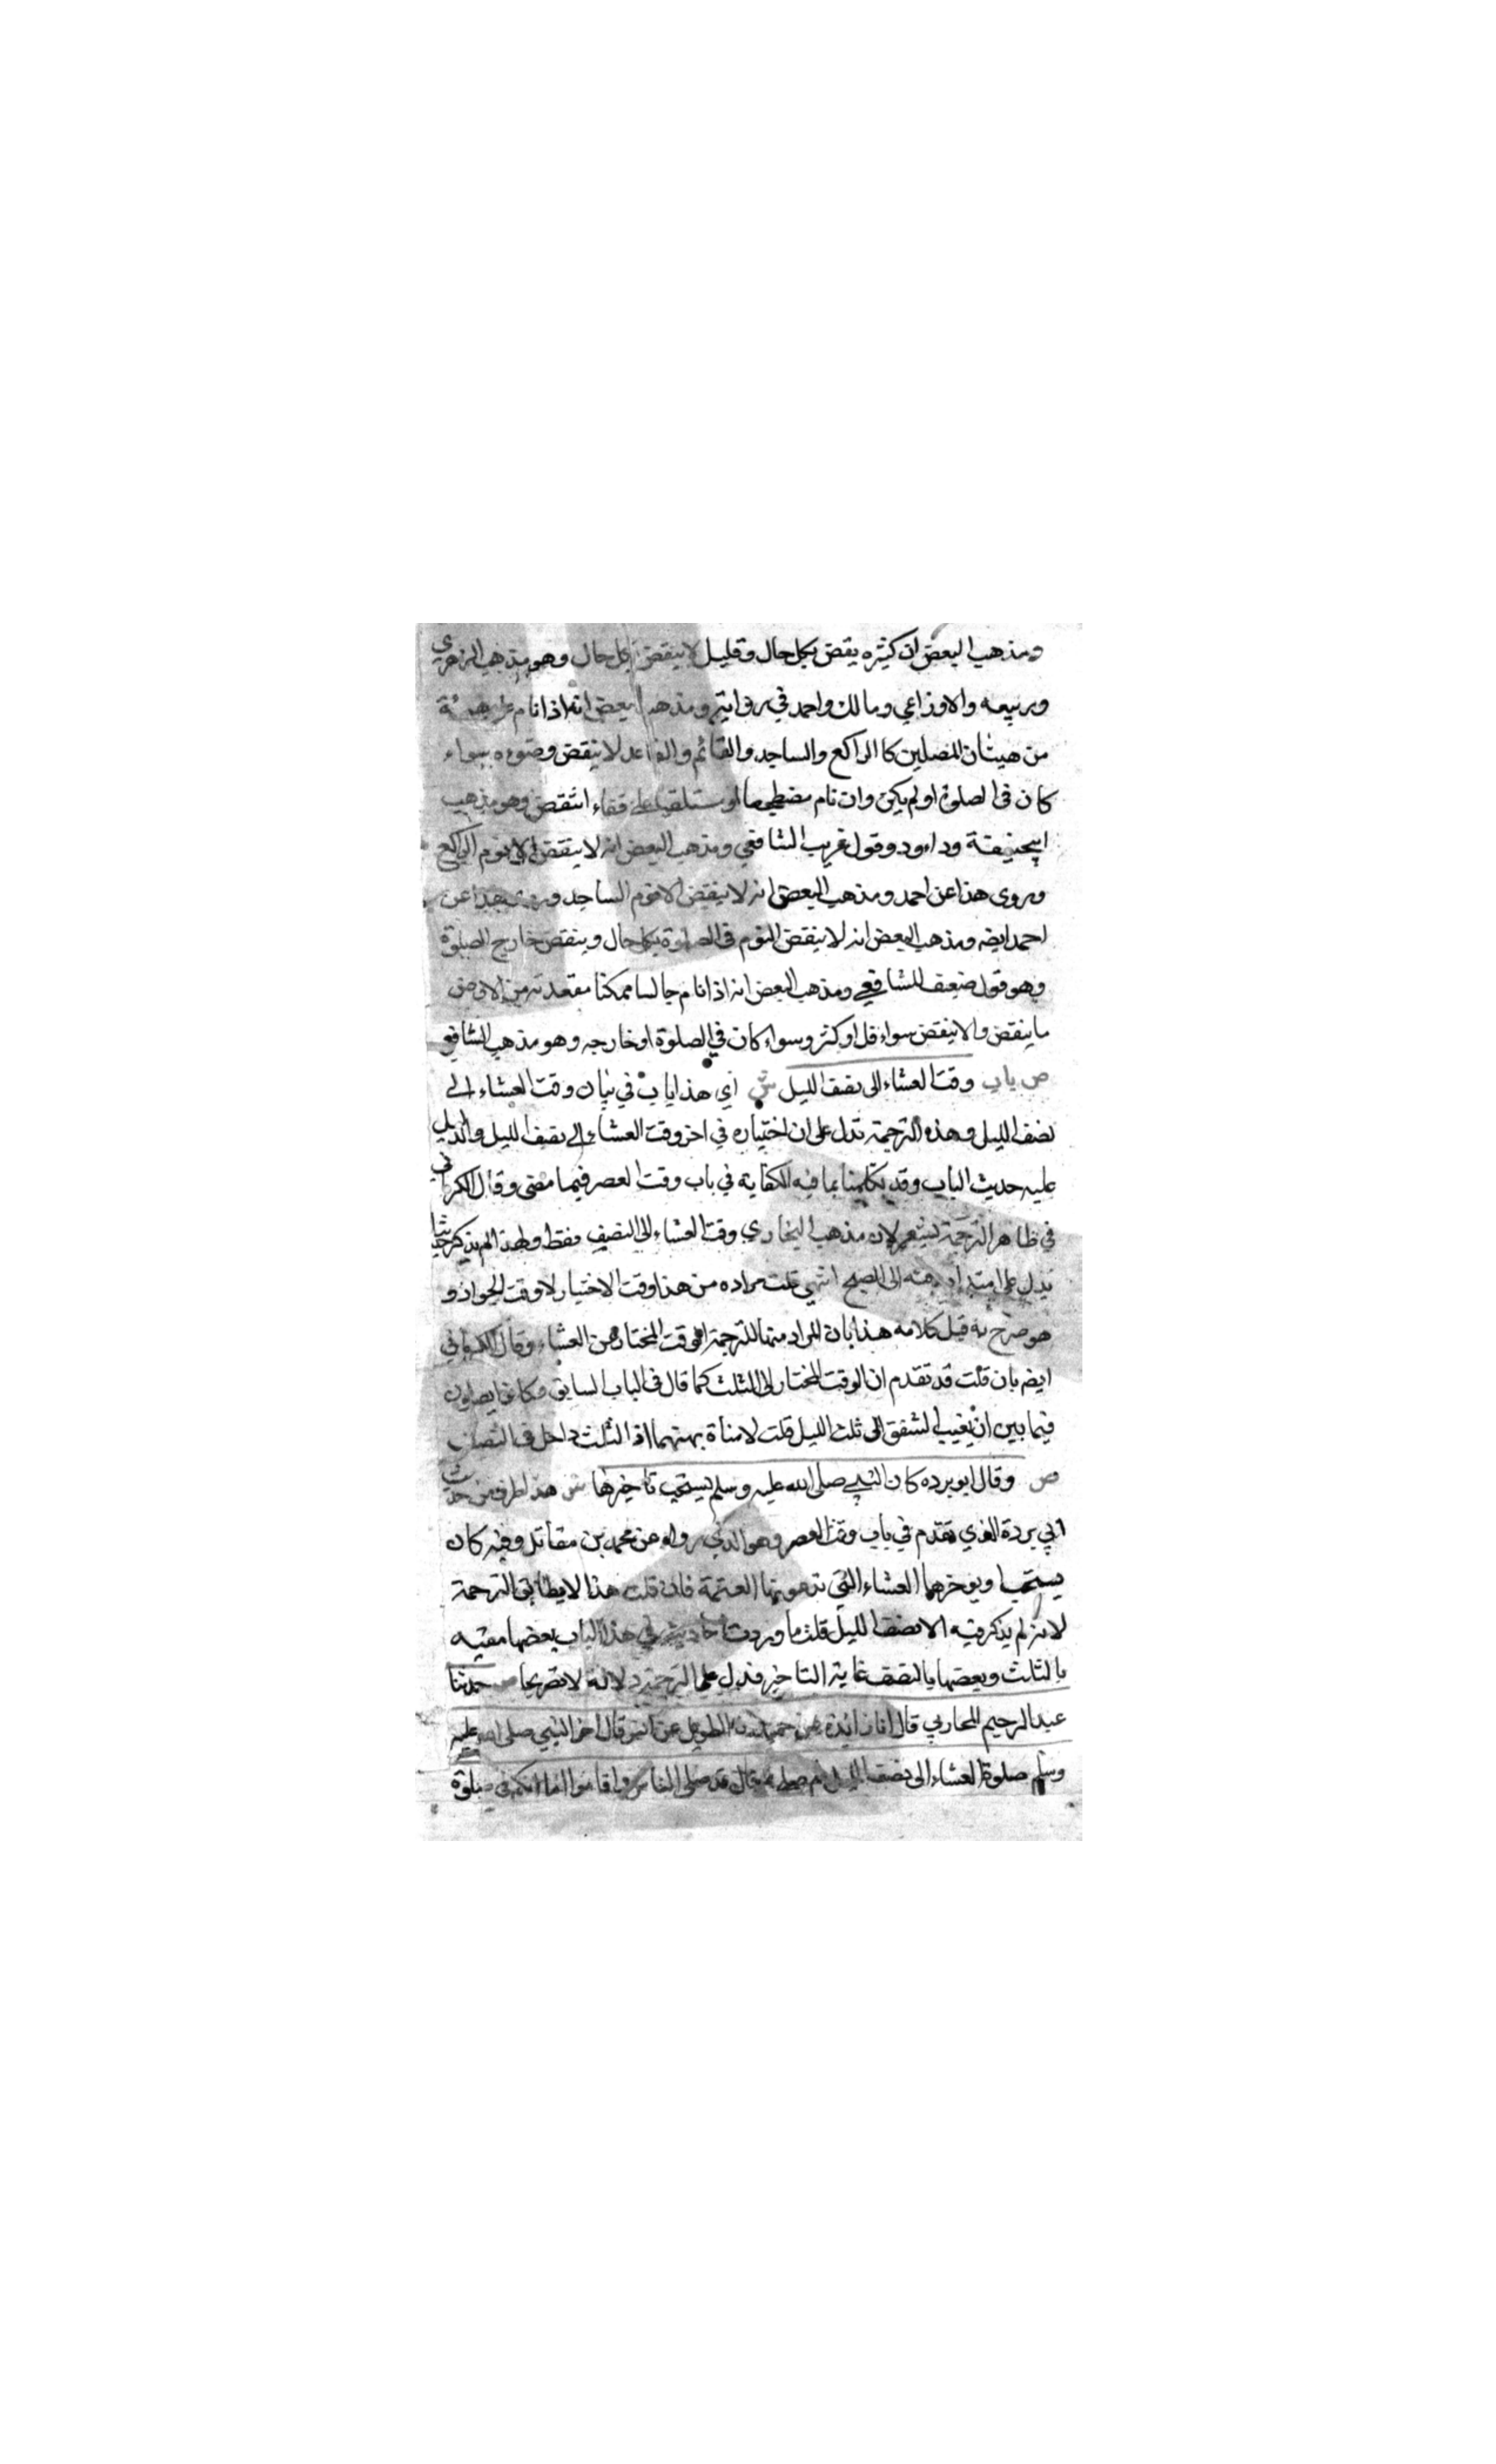 ومذهب البعض ان كثيره ينقض بكل حال وقليل لا ينقض بكل حال وهو مذهب الزهري
وربيعه والاوزاعي ومالك واحمد في رواية ومذهب البعض انه اذا نام على هيئة
من هيئات المصلين كالراكع والساجد والقائم والقاعد لا ينقض وضوءه سواء
كان في الصلوة او لم يكن وان نام مضطجعا او مستلقيا على قفاه انتقض وهو مذهب
ابيحنيفة وداود وقول غريب الشافعي ومذهب البعض انه لا ينقض الا نوم الراكع
وروى هذا عن احمد ومذهب البعض انه لا ينقض الا نوم الساجد وروى هذا عن
احمد ايضه ومذهب البعض انه لا ينقض النوم في الصلوة بكل حال وينقض خارج الصلوة
وهو قول ضعيف للشافعي ومذهب البعض انه اذا نام جالسا ممكنا مقعدته من الارض
ما ينقض والا ينقض سواء قل او كثر وسواء كان في الصلوة او خارجه وهو مذهب الشافعي
ص باب وقت العشاء الى نصف الليل ش اي هذا باب في بيان وقت العشاء الى
نصف الليل وهذه الترجمة تدل على ان اختياره في اخر وقت العشاء الى نصف الليل والدليل
عليه حديث الباب وقد تكلمنا بما فيه الكفاية في باب وقت العصر فيما مضى وقال الكرماني
في ظاهر الترجمة يشعر لان مذهب البخاري وقت العشاء الى النصف فقط ولهذا لم يذكر حديثا
يدل على امتداد وقته الى الصبح انتهى قلت مراده من هذا وقت الاختيار لا وقت الجواز و
هو صرح به قبل كلامه هذا بان المراد منها الترجمة الوقت المختار من العشاء وقال الكرماني
ايضه بان قلت قد تقدم ان الوقت المختار الى الثلث كما قال في الباب السابق وكانوا يصلون
فيما بين ان يغيب الشفق الى ثلث الليل قلت لا مناة بينهما اذ الثلث داخل في النصف
ص وقال ابو برده كان النبي صلى الله عليه وسلم يستحب تاخيرها ش هذا طرف من حديث
ابي بردة الذي تقدم في باب وقت العصر وهو الذي رواه عن محمد بن مقاتل وفيه كان
يستحب ا ويوخرها العشاء التي تدعونها العتمة فان قلت هذا لا يطابق الترجمة
لانه لم يذكر فيه الا نصف الليل قلت ما وردت احاديث في هذا الباب بعضها مقيه
بالثلث وبعضها بالنصف غاية التاخير فدل على الترجمة دلالة لا تصريحا ص حدثنا
عبد الرحيم المحاربي قال انا زائدة عن حميد الطويل عن انس قال اخر النبي صلى الله عليه
وسلم صلوة العشاء الى نصف الليل ثم صلى ثم قال قد صلى الناس وناموا اما انكم في صلوة